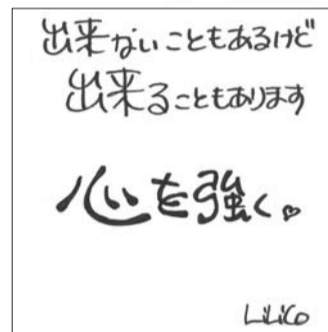 出来ないこともあるけど
出来ることもあります
心を強く。
LiLiCo